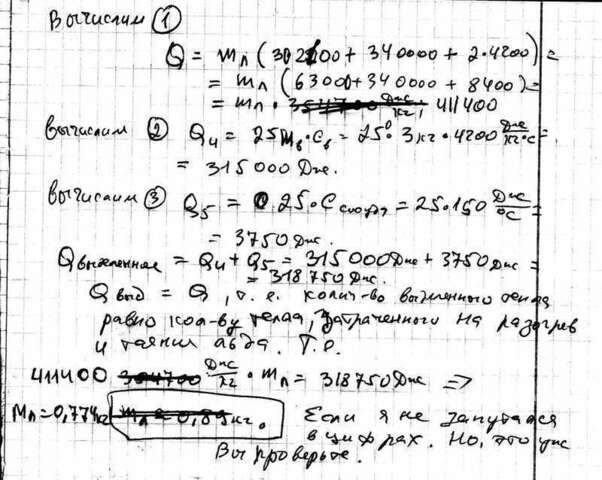 Вычислим ①
Q = mл (30·2100 + 340000 + 2·4200) =
= mл (63000 + 340000 + 8400) =
= mл · 411400
Вычислим ② Q₄ = 25 mв·Cв = 25°·3кг·4200 Дж/кг·°С =
= 315000 Дж.
Вычислим ③ Q₅ = 25·C = 25·150 Дж/°С =
= 3750 Дж.
Qвыделенное = Q₄ + Q₅ = 315000 Дж + 3750 Дж =
= 318750 Дж.
Qвыд = Q, т.е. колич-во выделенного тепла
равно кол-ву тепла, затраченного на разогрев
и таяние льда. Т.о.
411400 Дж/кг · mл = 318750 Дж =>
Mл = 0,774 кг. Если я не запутался
в цифрах. Но, это уж
Вы проверьте.